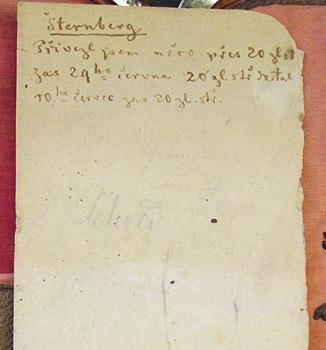 Šternberg
Přivezl jsem něco přes 20 zl st
zas 29ho června 20 zl stř dostal
10ho července zas 20 zl. stř.